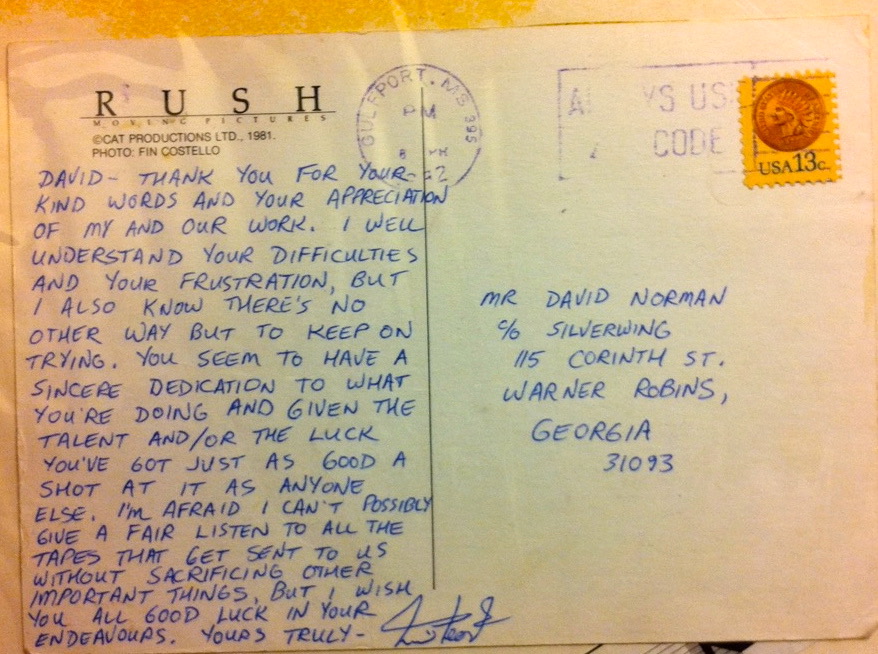 RUSH
MOVING PICTURES
©CAT PRODUCTIONS LTD., 1981.
PHOTO: FIN COSTELLO
DAVID – THANK YOU FOR YOUR
KIND WORDS AND YOUR APPRECIATION
OF MY AND OUR WORK. I WELL
UNDERSTAND YOUR DIFFICULTIES
AND YOUR FRUSTRATION, BUT
I ALSO KNOW THERE'S NO
OTHER WAY BUT TO KEEP ON
TRYING. YOU SEEM TO HAVE A
SINCERE DEDICATION TO WHAT
YOU'RE DOING AND GIVEN THE
TALENT AND/OR THE LUCK
YOU'VE GOT JUST AS GOOD A
SHOT AT IT AS ANYONE
ELSE. I'M AFRAID I CAN'T POSSIBLY
GIVE A FAIR LISTEN TO ALL THE
TAPES THAT GET SENT TO US
WITHOUT SACRIFICING OTHER
IMPORTANT THINGS, BUT I WISH
YOU ALL GOOD LUCK IN YOUR
ENDEAVOURS. YOURS TRULY –
GULFPORT, MS 395
PM
YS US
CODE
USA 13c.
MR DAVID NORMAN
c/o SILVERWING
115 CORINTH ST.
WARNER ROBINS,
GEORGIA
31093